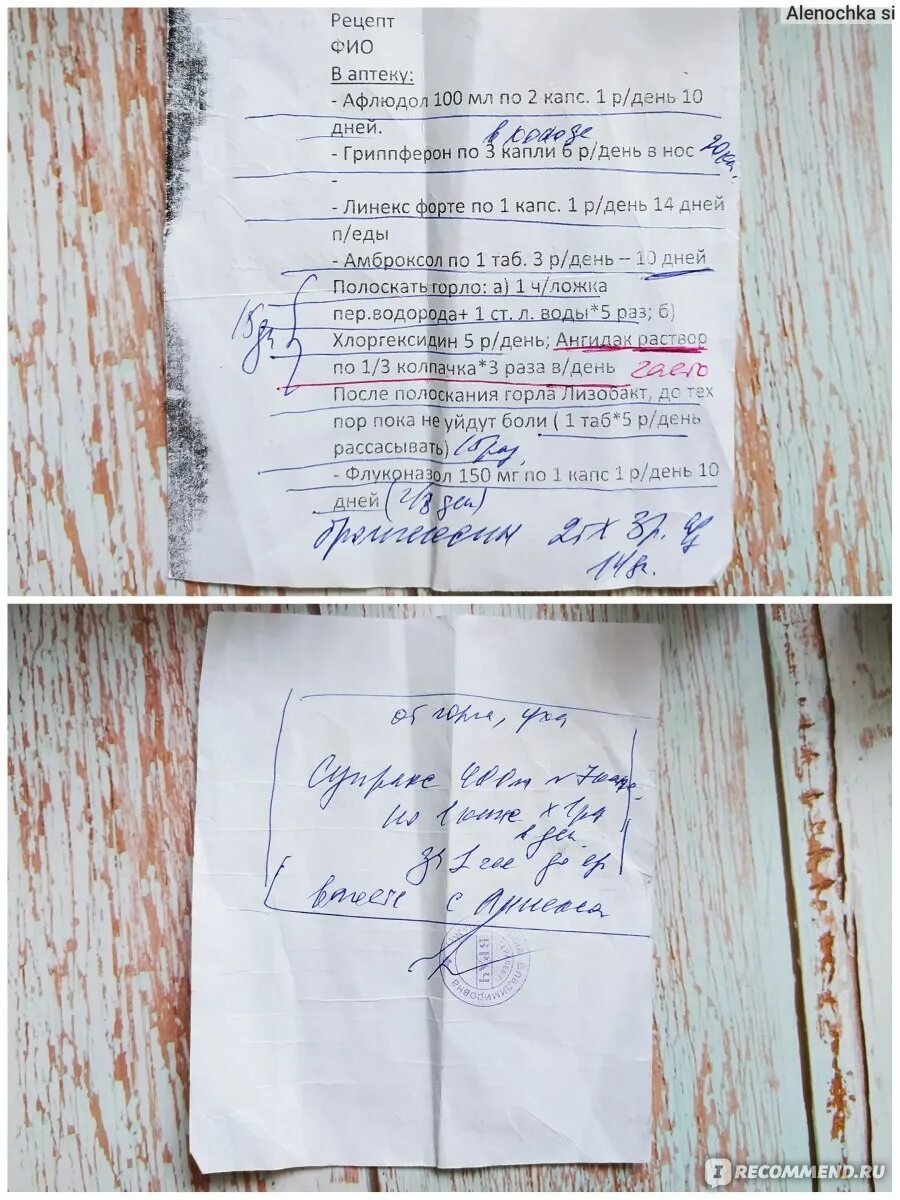 Alenochka si
Рецепт
ФИО
В аптеку:
- Афлюдол 100 мл по 2 капс. 1 р/день 10
дней.
- Гриппферон по 3 капли 6 р/день в нос
-
- Линекс форте по 1 капс. 1 р/день 14 дней
п/еды
- Амброксол по 1 таб. 3 р/день – 10 дней
Полоскать горло: а) 1 ч/ложка
пер.водорода+ 1 ст. л. воды*5 раз; б)
15 дн
Хлоргексидин 5 р/день; Ангидак раствор
по 1/3 колпачка*3 раза в/день
После полоскания горла Лизобакт, до тех
пор пока не уйдут боли ( 1 таб*5 р/день
рассасывать)
- Флуконазол 150 мг по 1 капс 1 р/день 10
дней
2т х 3 р.
14 дн.
от горла, уха
Супракс 400
по 1 х 1 р
в ден.
за 1 час до
вместе с
Владимировна
IRECOMMEND.RU